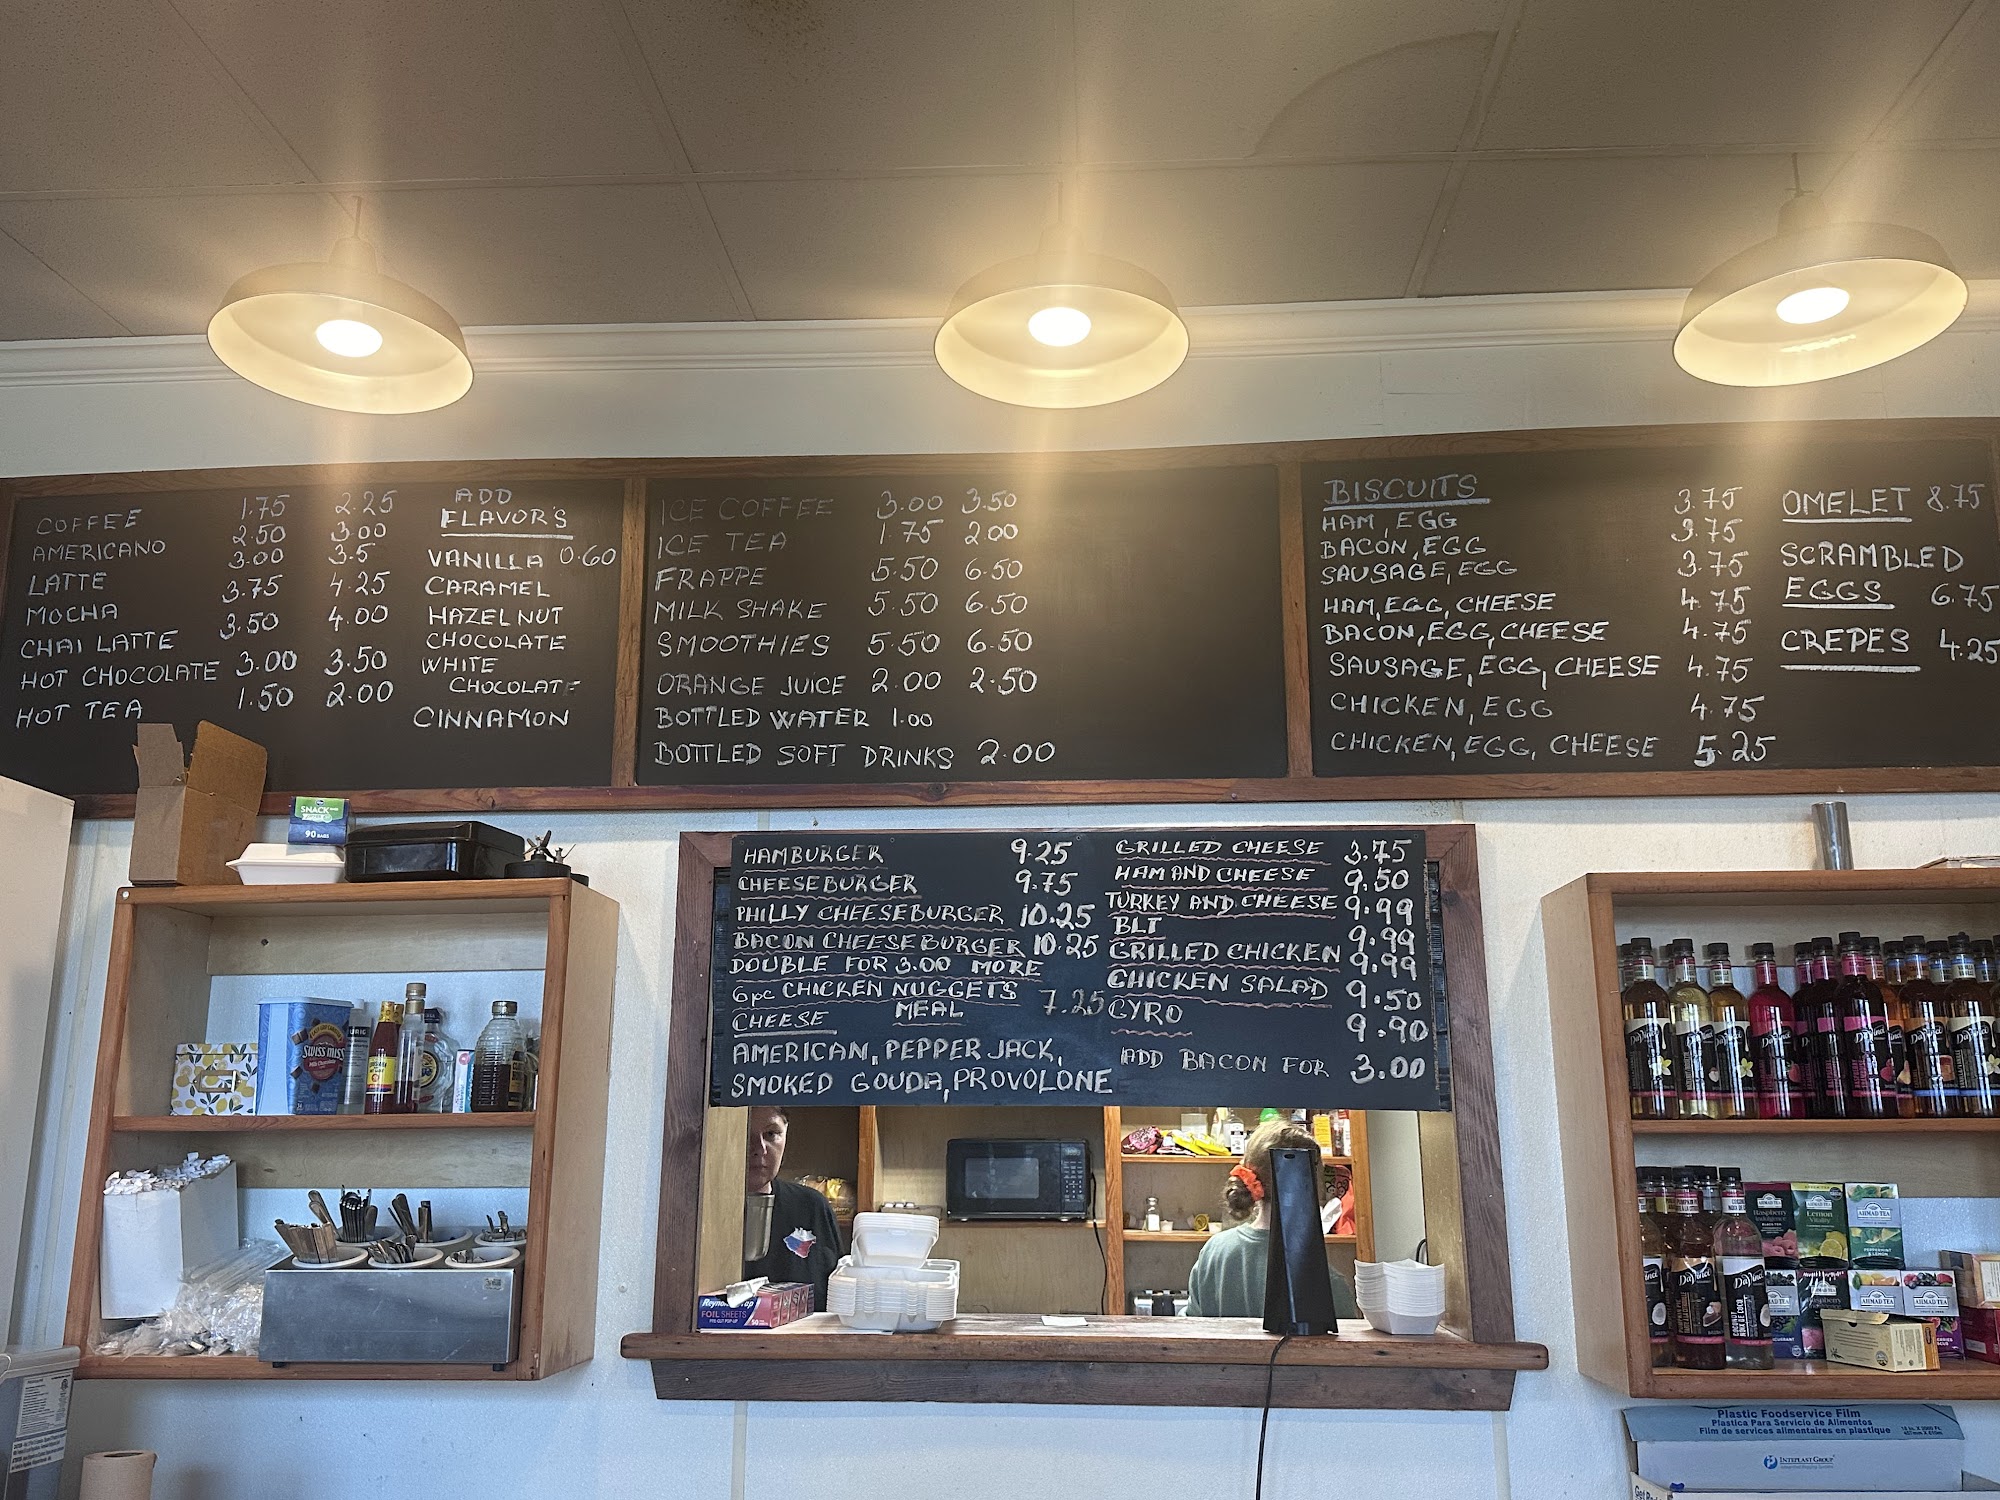 COFFEE 1.75 2.25
AMERICANO 2.50 3.00
LATTE 3.00 3.5
MOCHA 3.75 4.25
CHAI LATTE 3.50 4.00
HOT CHOCOLATE 3.00 3.50
HOT TEA 1.50 2.00
ADD
FLAVOR'S
VANILLA 0.60
CARAMEL
HAZELNUT
CHOCOLATE
WHITE
CHOCOLATE
CINNAMON
ICE COFFEE 3.00 3.50
ICE TEA 1.75 2.00
FRAPPE 5.50 6.50
MILK SHAKE 5.50 6.50
SMOOTHIES 5.50 6.50
ORANGE JUICE 2.00 2.50
BOTTLED WATER 1.00
BOTTLED SOFT DRINKS 2.00
BISCUITS
HAM, EGG 3.75
BACON, EGG 3.75
SAUSAGE, EGG 3.75
HAM, EGG, CHEESE 4.75
BACON, EGG, CHEESE 4.75
SAUSAGE, EGG, CHEESE 4.75
CHICKEN, EGG 4.75
CHICKEN, EGG, CHEESE 5.25
OMELET 8.75
SCRAMBLED
EGGS 6.75
CREPES 4.25
HAMBURGER 9.25
CHEESEBURGER 9.75
PHILLY CHEESEBURGER 10.25
BACON CHEESEBURGER 10.25
DOUBLE FOR 3.00 MORE
6pc CHICKEN NUGGETS
MEAL 7.25
CHEESE
AMERICAN, PEPPER JACK,
SMOKED GOUDA, PROVOLONE
GRILLED CHEESE 3.75
HAM AND CHEESE 9.50
TURKEY AND CHEESE 9.99
BLT 9.99
GRILLED CHICKEN 9.99
CHICKEN SALAD 9.50
GYRO 9.90
ADD BACON FOR 3.00
SNACK
90 BAGS
SWISS MISS
Reynolds Wrap
FOIL SHEETS
DaVinci
DaVinci
DaVinci
DaVinci
DaVinci
DaVinci
AHMAD TEA
Raspberry
Indulgence
AHMAD TEA
Lemon
Vitality
AHMAD TEA
PEPPERMINT
& LEMON
DaVinci
DaVinci
AHMAD TEA
AHMAD TEA
Plastic Foodservice Film
Plastica Para Servicio de Alimentos
Film de services alimentaires en plastique
INTEPLAST GROUP